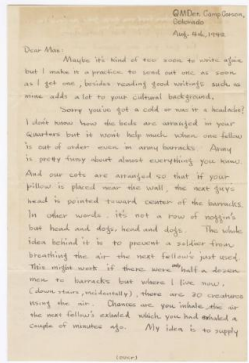 QM Det. Camp Carson,
Colorado
Aug. 4th, 1942
Dear Max:
Maybe it's kind of too soon to write again
but I make is a practice to send out one as soon
as I get one, besides reading good writings such as
mine adds a lot to your cultural background.
Sorry you've got a cold or was it a headache!
I don't know how the beds are arranged in your
Quarters but it wont help much when one fellow
is out of order even in army barracks. Army
is pretty fussy about almost everything you know.
And our cots are arranged so that if your
pillow is placed near the wall, the next guys
head is pointed toward center of the barracks.
In other words, it's not a row of noggin's
but head and dogs, head and dogs. The whole
idea behind it is to prevent a soldier from
breathing the air the next fellow's just used.
This might work if there were only half a dozen
men to barracks but where I live now,
(down stairs, incidentally), there are 30 creatures
using the air. Chances are you inhale the air
the next fellow's exhaled which you had exhaled a
couple of minutes ago. My idea is to supply
(over)